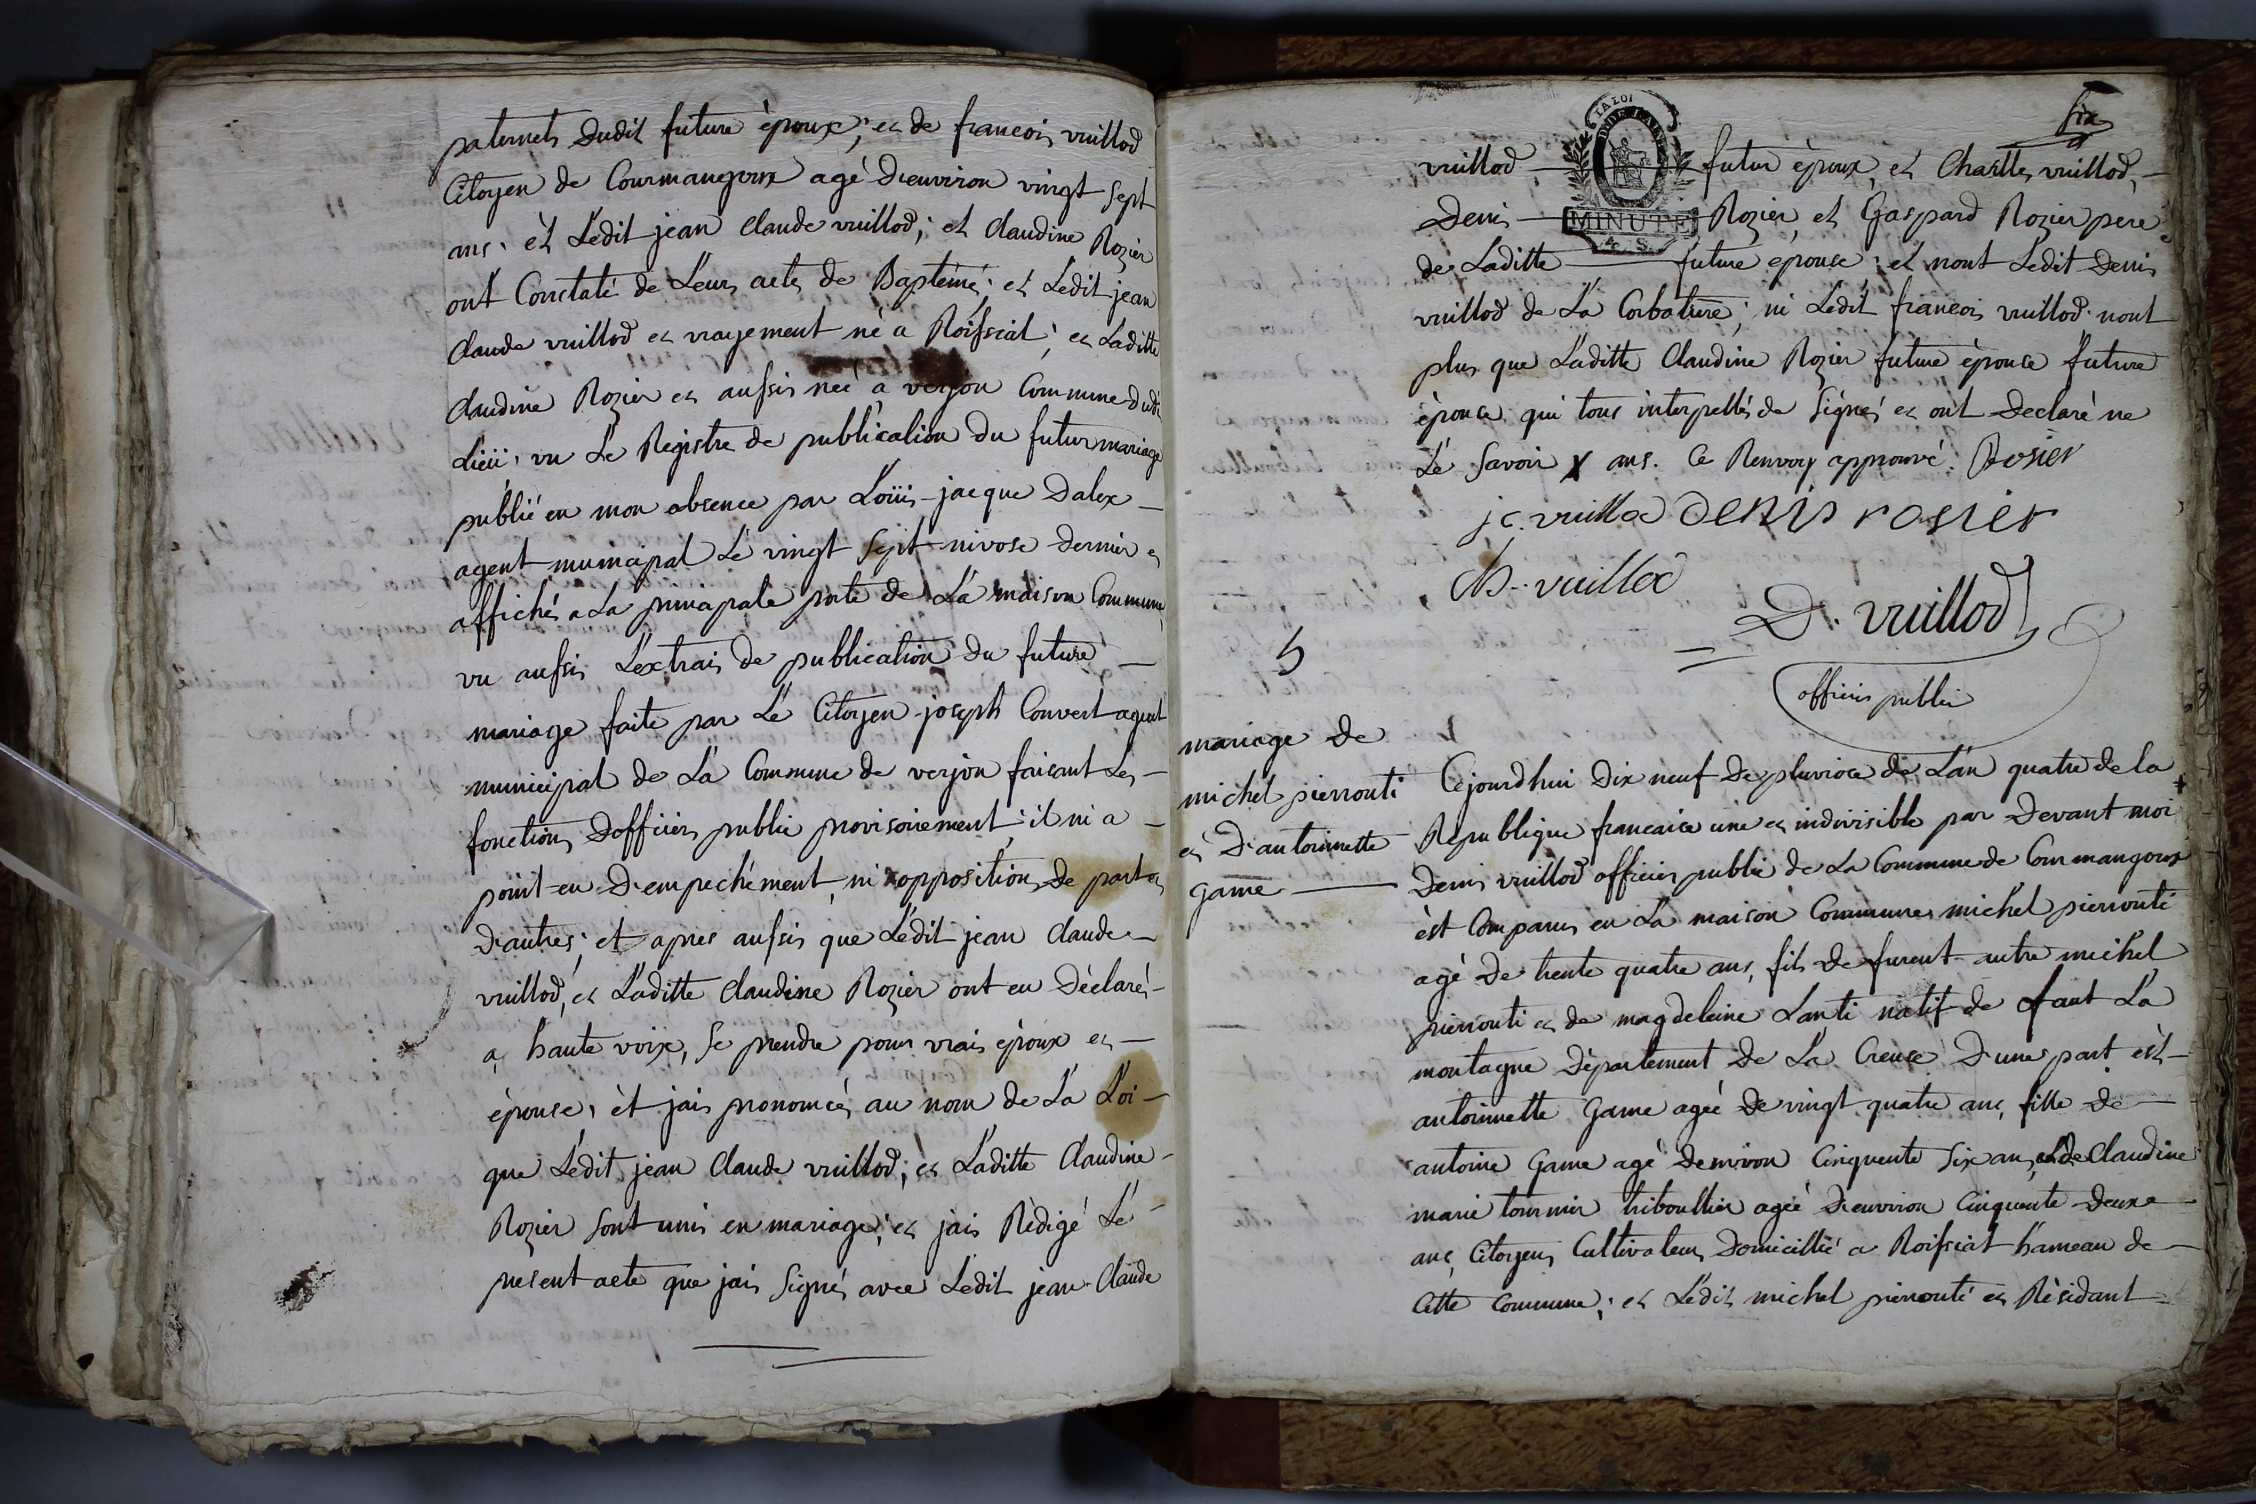 paternels dudit future èpoux; et de francois vuillod
Citoyen de Courmangoux agé d'environ vingt sept
ans; èt Ledit jean Claude vuillod; et Claudine Rozier
ont Constaté de Leurs actes de Baptémé; et Ledit jean
Claude vuillod es vrayement nè a Roissiat; et Laditte
Claudine Rozier es aussis neé a verjon Commune dudi
Lieü; vu Le Registre de publication du futur mariage
publié en mon absence par Loüis jacque Dalex
agent municipal Lé vingt sept nivose dernier et
affichés a La principale porte de La maison Commune,
vu aussis L'extrais de publication du future
mariage faite par Le Citoyen joseph Convert agent
municipal de La Commune de verjon faisant Les
fonctions Dofficiers public provisoirement; il ni a
point eu D'empechement, ni opposition, de part et
D'autres; et apres aussis que Ledit jean Claude
vuillod, et Laditte Claudine Rozier ont eu Dèclarés
a haute voix, se prendre pour vrais èpoux et
èpouse; èt jais prononcés au nom de La Loi
que Ledit jean Claude vuillod; et Laditte Claudine
Rozier sont unis en mariage; et jais Rèdigé Le
present acte que jais Signés avec Ledit jean Claude
six
MINUTE
4. S.
vuillod, futur èpoux, et Charlles vuillod,
Denis Rozier, et Gaspard Rozier pere
de Laditte future epouse; et nont Ledit Denis
vuillod de La Corbatiere; ni Ledit francois vuillod nont
plus que Laditte Claudine Rozier future èpouse future
èpouse qui tous interpellés de Signés es ont Declaré ne
Lé Savoir X ans. Ce Renvoy approuvé. Rosier
j c. vuillod DENIS rosier
Ch. vuillod
D. vuillod
officier public
5
mariage de
michel pierrouti
et D'antoinette
Game
Cejourdhui Dix neuf De pluviose de L'an quatre de la
Republique francaise une et indivisible par Devant moi
Denis vuillod officier public de La Commune de Courmangoux
èst Comparus en La maison Communes michel pierrouti
agé De trente quatre ans, fils De furent autre michel
pierrouti et de magdeleine Lanti natif de faut La
montagne Dèpartement De La Creuse D'une part èst
antoinette Game ageé De vingt quatre ans, fille De
antoine Game agé Denviron Cinquente Six ans, et de Claudine
marie tournier triboullier ageé D'environ Cinquente Deux
ans, Citoyens Cultivateurs Domicillié a Roissiat hameau de
Cette Commune; et Ledit michel pierrouti es Rèsidant